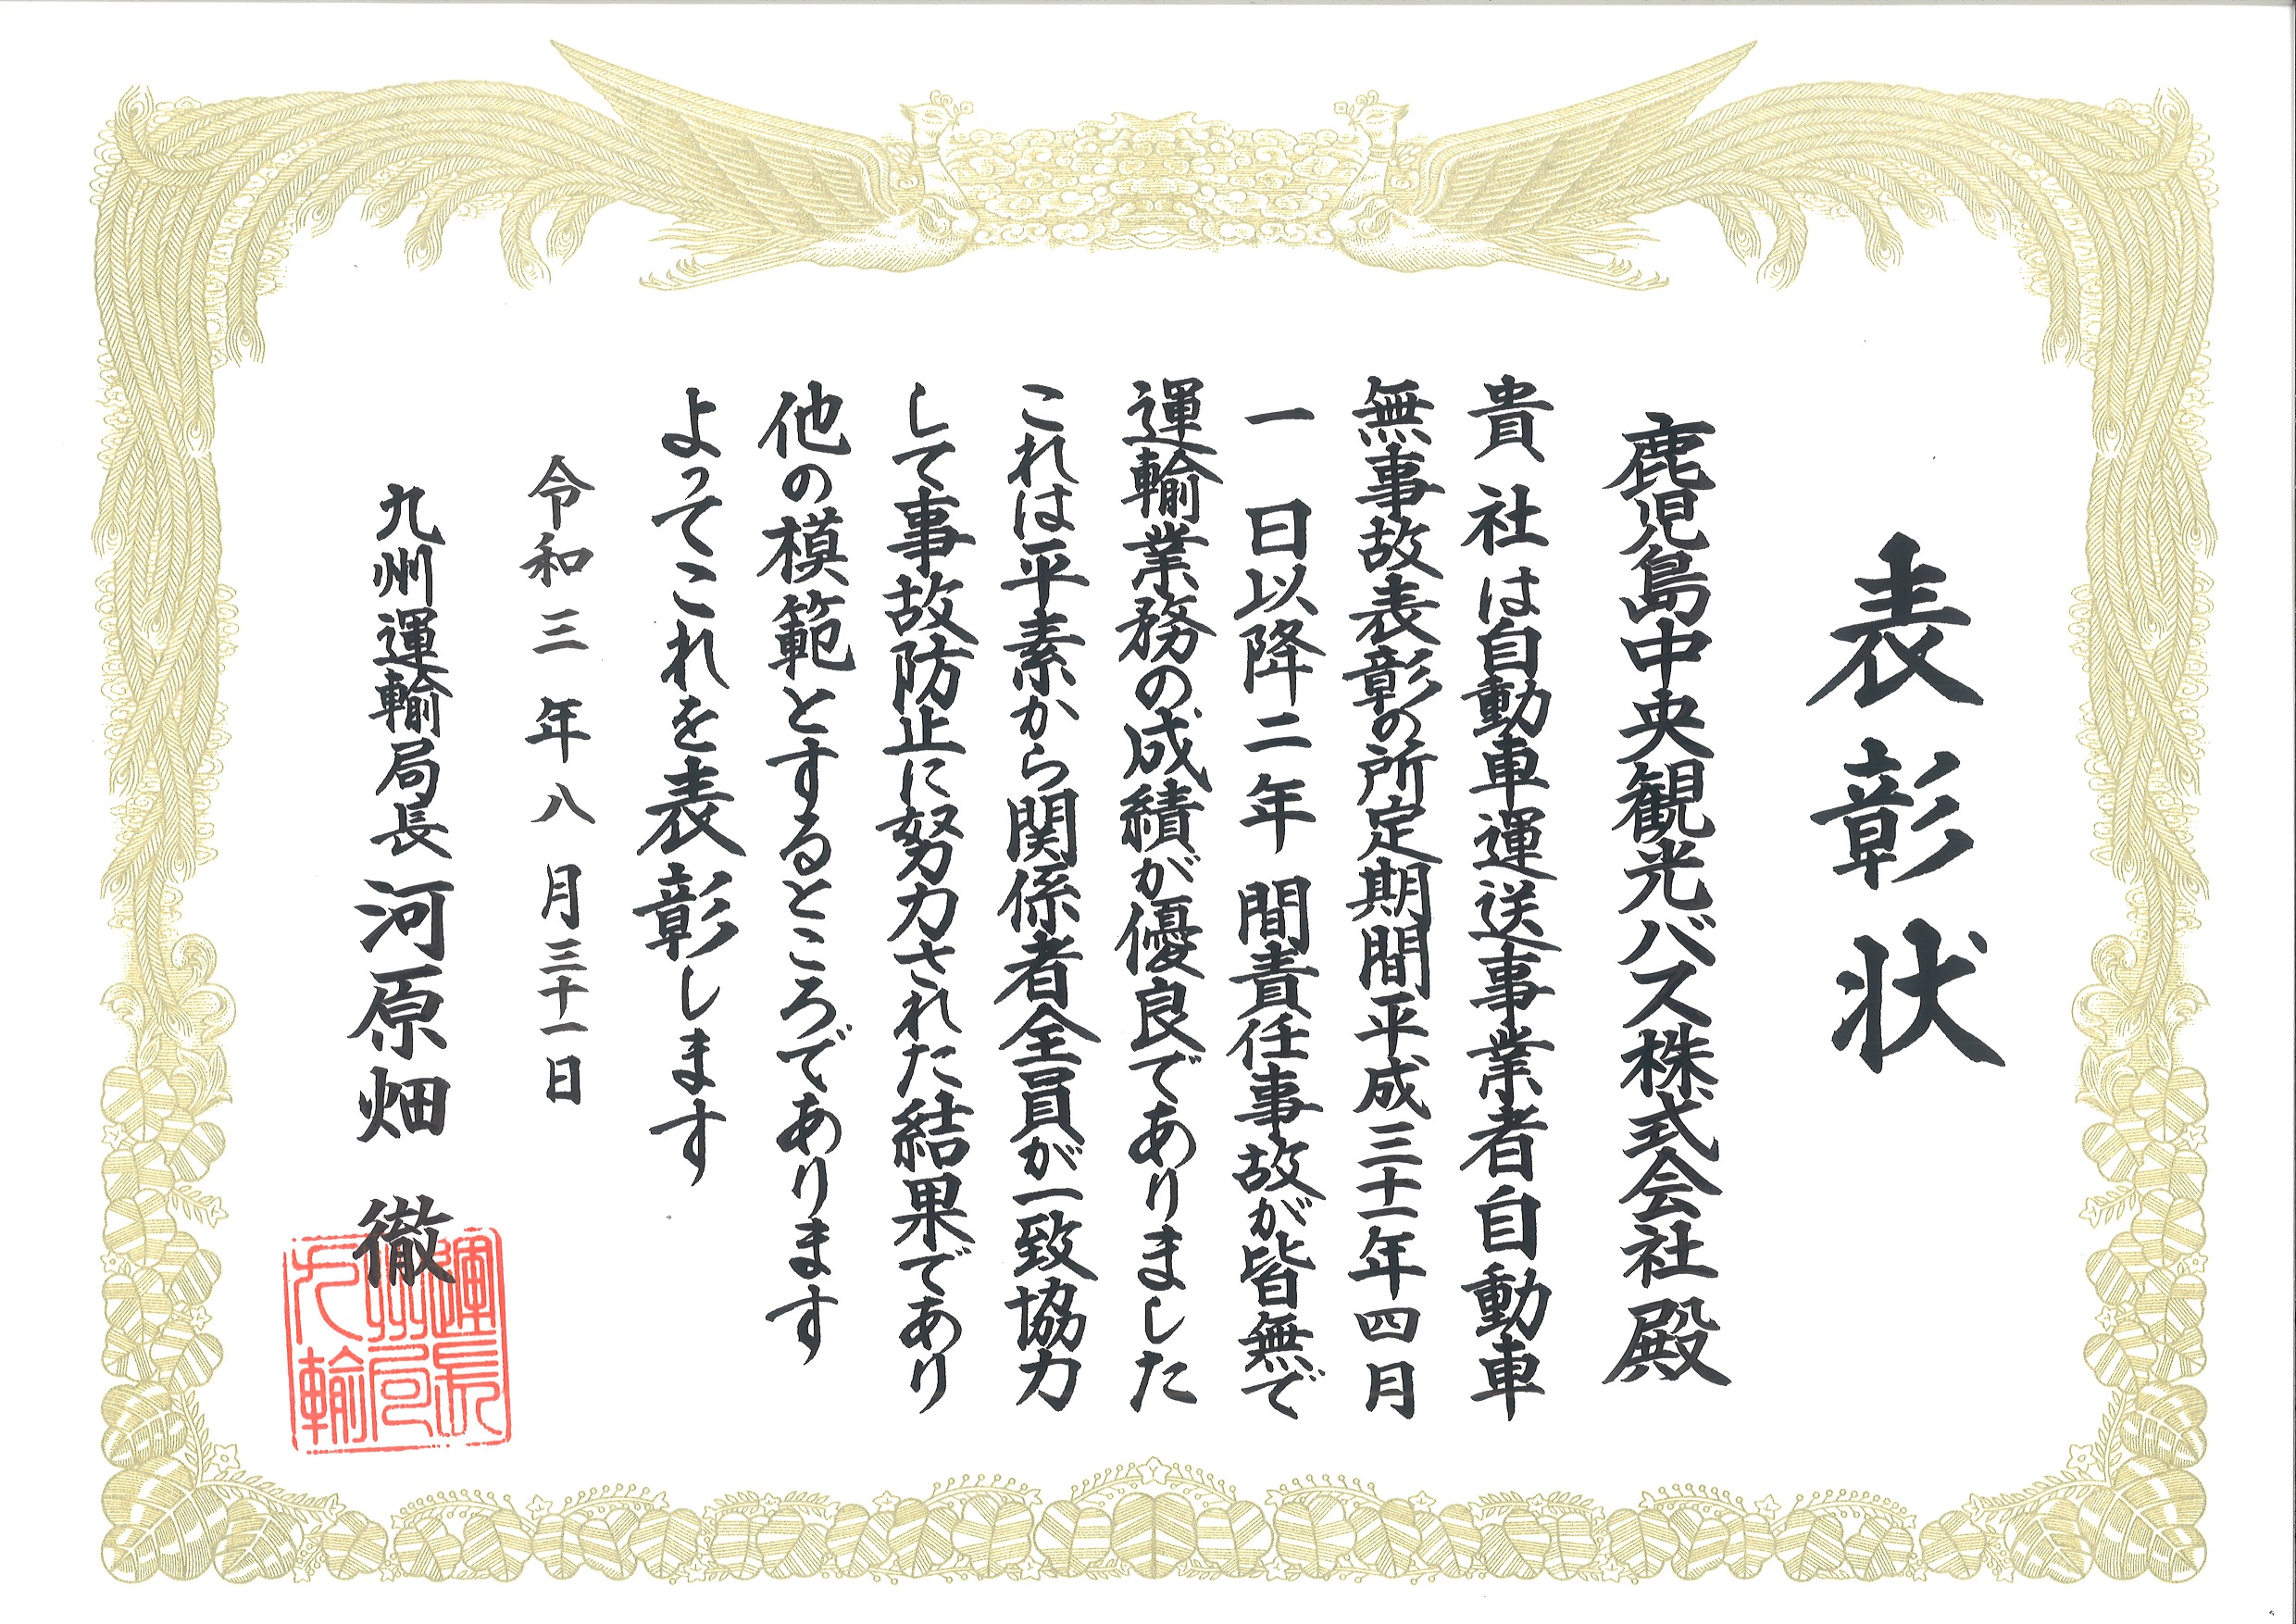 表彰状
鹿児島中央観光バス株式会社殿
貴社は自動車運送事業者自動車
無事故表彰の所定期間平成三十一年四月
一日以降二年間責任事故が皆無で
運輸業務の成績が優良でありました
これは平素から関係者全員が一致協力
して事故防止に努力された結果であり
他の模範とするところであります
よってこれを表彰します
令和三年八月三十一日
九州運輸局長河原畑徹
九州運輸局長